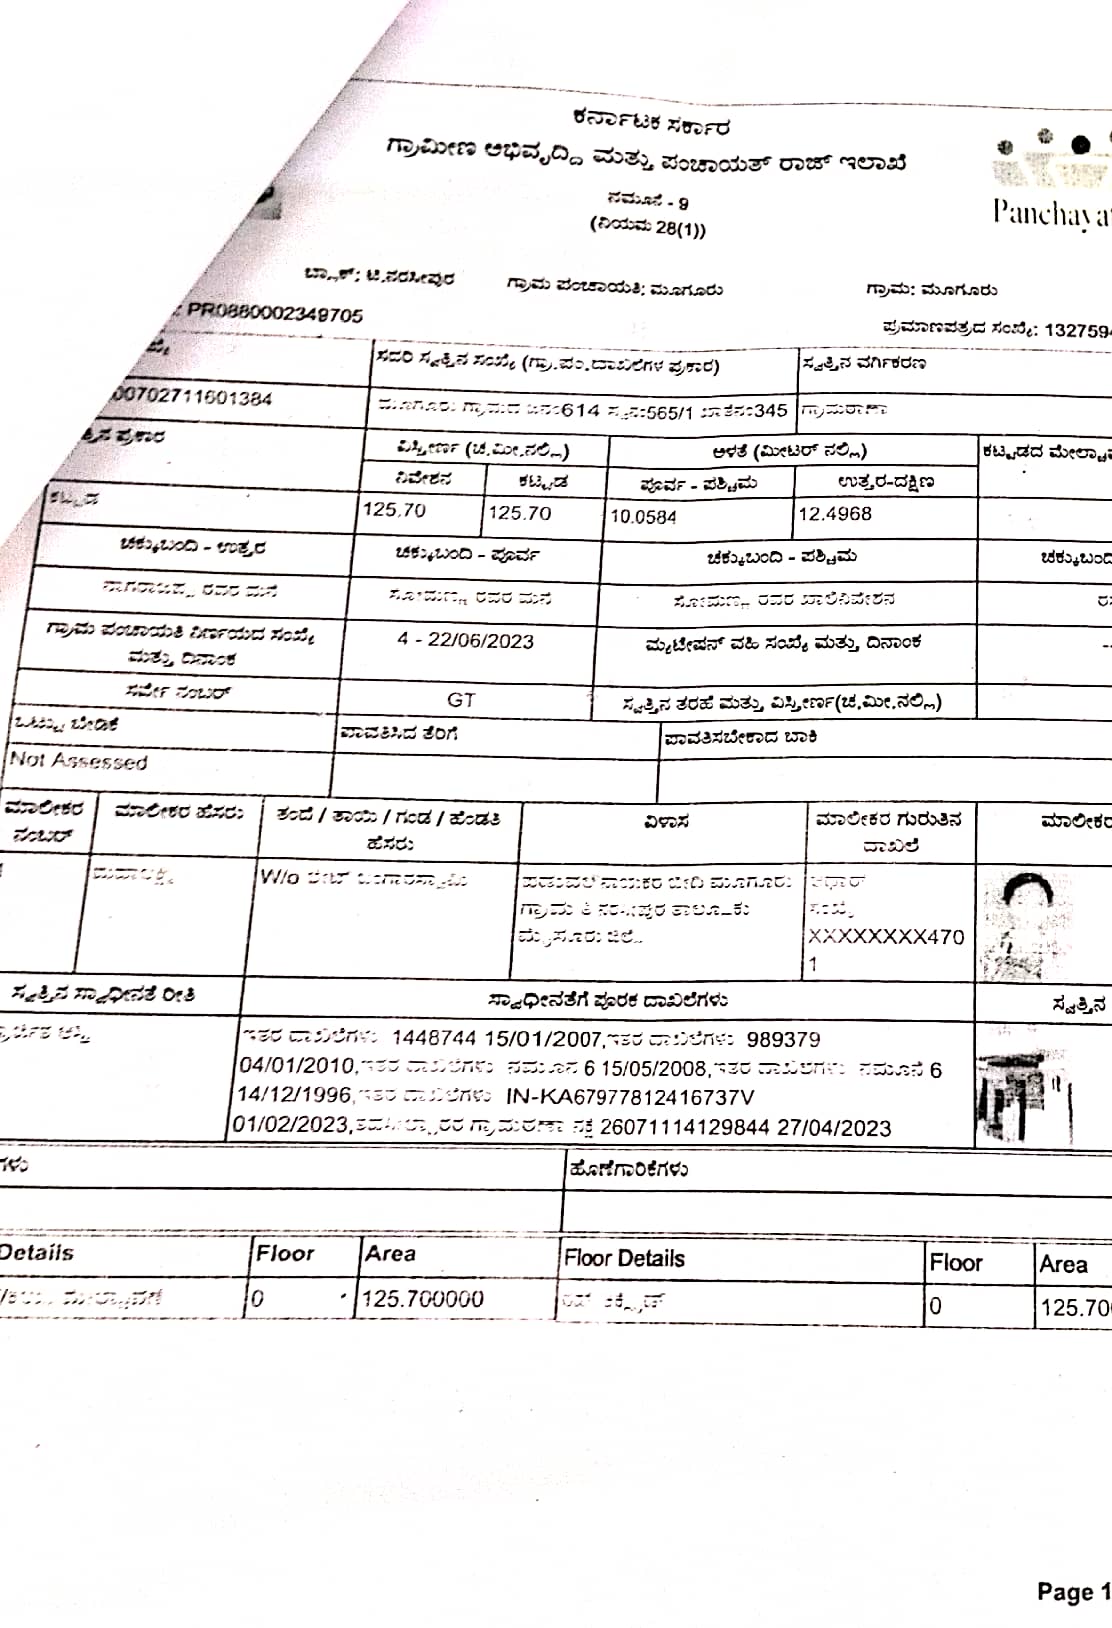 ಕರ್ನಾಟಕ ಸರ್ಕಾರ
ಗ್ರಾಮೀಣ ಅಭಿವೃದ್ದಿ ಮತ್ತು ಪಂಚಾಯತ್ ರಾಜ್ ಇಲಾಖೆ
ನಮೂನೆ - 9
(ನಿಯಮ 28(1))
ಬ್ಲಾಕ್: ಟಿ.ನರಸೀಪುರ ಗ್ರಾಮ ಪಂಚಾಯತಿ: ಮೂಗೂರು ಗ್ರಾಮ: ಮೂಗೂರು
: PR0880002349705 ಪ್ರಮಾಣಪತ್ರದ ಸಂಖ್ಯೆ: 1327594
ಸದರಿ ಸ್ವತ್ತಿನ ಸಂಖ್ಯೆ (ಗ್ರಾ.ಪಂ.ದಾಖಲೆಗಳ ಪ್ರಕಾರ) ಸ್ವತ್ತಿನ ವರ್ಗಿಕರಣ
00702711601384 ಮೂಗೂರು ಗ್ರಾಮದ ಜನಂ614 ಸ್ವನಂ565/1 ಖಾತನಂ345 ಗ್ರಾಮಠಾಣಾ
ಪ್ರಕಾರ ವಿಸ್ತೀರ್ಣ (ಚ.ಮೀ.ನಲ್ಲಿ) ಅಳತೆ (ಮೀಟರ್ ನಲ್ಲಿ) ಕಟ್ಟಡದ
ನಿವೇಶನ ಕಟ್ಟಡ ಪೂರ್ವ - ಪಶ್ಚಿಮ ಉತ್ತರ-ದಕ್ಷಿಣ
ಕಟ್ಟಡ 125.70 125.70 10.0584 12.4968
ಚಕ್ಕುಬಂದಿ - ಉತ್ತರ ಚಕ್ಕುಬಂದಿ - ಪೂರ್ವ ಚಕ್ಕುಬಂದಿ - ಪಶ್ಚಿಮ ಚಕ್ಕುಬಂದಿ
ರವರ ಮನೆ ಸೋಮಣ್ಣ ರವರ ಮನೆ ಸೋಮಣ್ಣ ರವರ ಖಾಲಿನಿವೇಶನ
ಗ್ರಾಮ ಪಂಚಾಯತಿ ನಿರ್ಣಯದ ಸಂಖ್ಯೆ 4 - 22/06/2023 ಮ್ಯುಟೇಷನ್ ವಹಿ ಸಂಖ್ಯೆ ಮತ್ತು ದಿನಾಂಕ --
ಮತ್ತು ದಿನಾಂಕ
ಸರ್ವೇ ನಂಬರ್ GT ಸ್ವತ್ತಿನ ತರಹೆ ಮತ್ತು ವಿಸ್ತೀರ್ಣ(ಚ.ಮೀ.ನಲ್ಲಿ)
ಒಟ್ಟು ಬೇಡಿಕೆ ಪಾವತಿಸಿದ ತೆರಿಗೆ ಪಾವತಿಸಬೇಕಾದ ಬಾಕಿ
Not Assessed
ಮಾಲೀಕರ ಮಾಲೀಕರ ಹೆಸರು ತಂದೆ / ತಾಯಿ / ಗಂಡ / ಹೆಂಡತಿ ವಿಳಾಸ ಮಾಲೀಕರ ಗುರುತಿನ ಮಾಲೀಕರ
ನಂಬರ್ ಹೆಸರು ದಾಖಲೆ
W/o ಲೇಟ್ ಬಂಗಾರಸ್ವಾಮಿ ನಾಯಕರ ಬೀದಿ ಮೂಗೂರು ಆಧಾರ್
ಗ್ರಾಮ ತಿ ನರಸೀಪುರ ತಾಲೂಕು ಸಂಖ್ಯೆ
ಮೈಸೂರು ಜಿಲ್ಲೆ XXXXXXXX470
1
ಸ್ವತ್ತಿನ ಸ್ವಾಧೀನತೆ ರೀತಿ ಸ್ವಾಧೀನತೆಗೆ ಪೂರಕ ದಾಖಲೆಗಳು ಸ್ವತ್ತಿನ
ಆಸ್ತಿ ಇತರ ದಾಖಲೆಗಳು 1448744 15/01/2007,ಇತರ ದಾಖಲೆಗಳು 989379
04/01/2010,ಇತರ ದಾಖಲೆಗಳು ನಮೂನೆ 6 15/05/2008,ಇತರ ದಾಖಲೆಗಳು ನಮೂನೆ 6
14/12/1996,ಇತರ ದಾಖಲೆಗಳು IN-KA67977812416737V
01/02/2023,ತಹಸೀಲ್ದಾರರ ಗ್ರಾಮಠಾಣಾ ನಕ್ಷೆ 26071114129844 27/04/2023
ಗಳು ಹೊಣೆಗಾರಿಕೆಗಳು
Details Floor Area Floor Details Floor Area
0 125.700000 0 125.70
Panchaya
Page 1